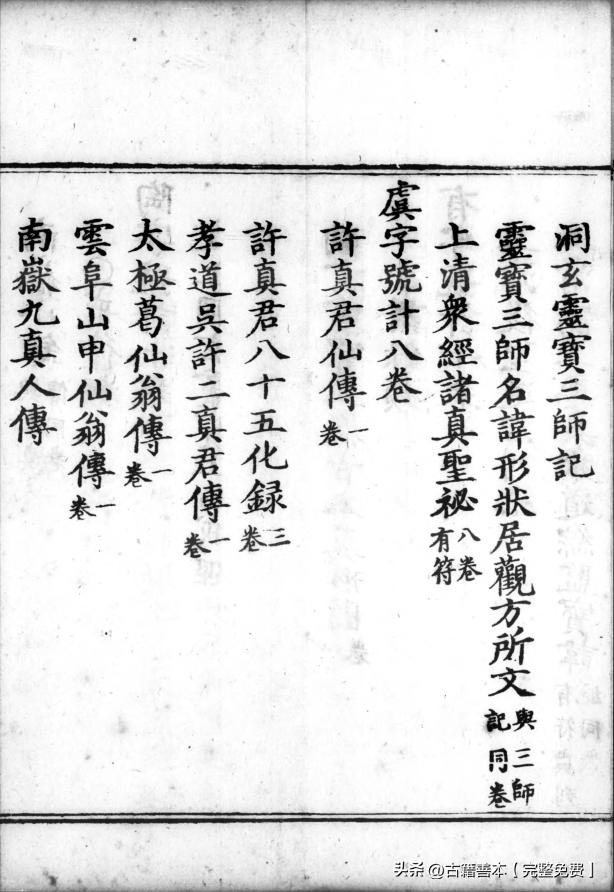 洞玄靈寶三師記
靈寶三師名諱形狀居觀方所文與三師記同卷
上清衆經諸真聖祕八卷有符
虞字號計八卷
許真君仙傳一卷
許真君八十五化録三卷
孝道吳許二真君傳一卷
太極葛仙翁傳一卷
雲阜山申仙翁傳一卷
南嶽九真人傳
头条@古籍善本【完整免费】